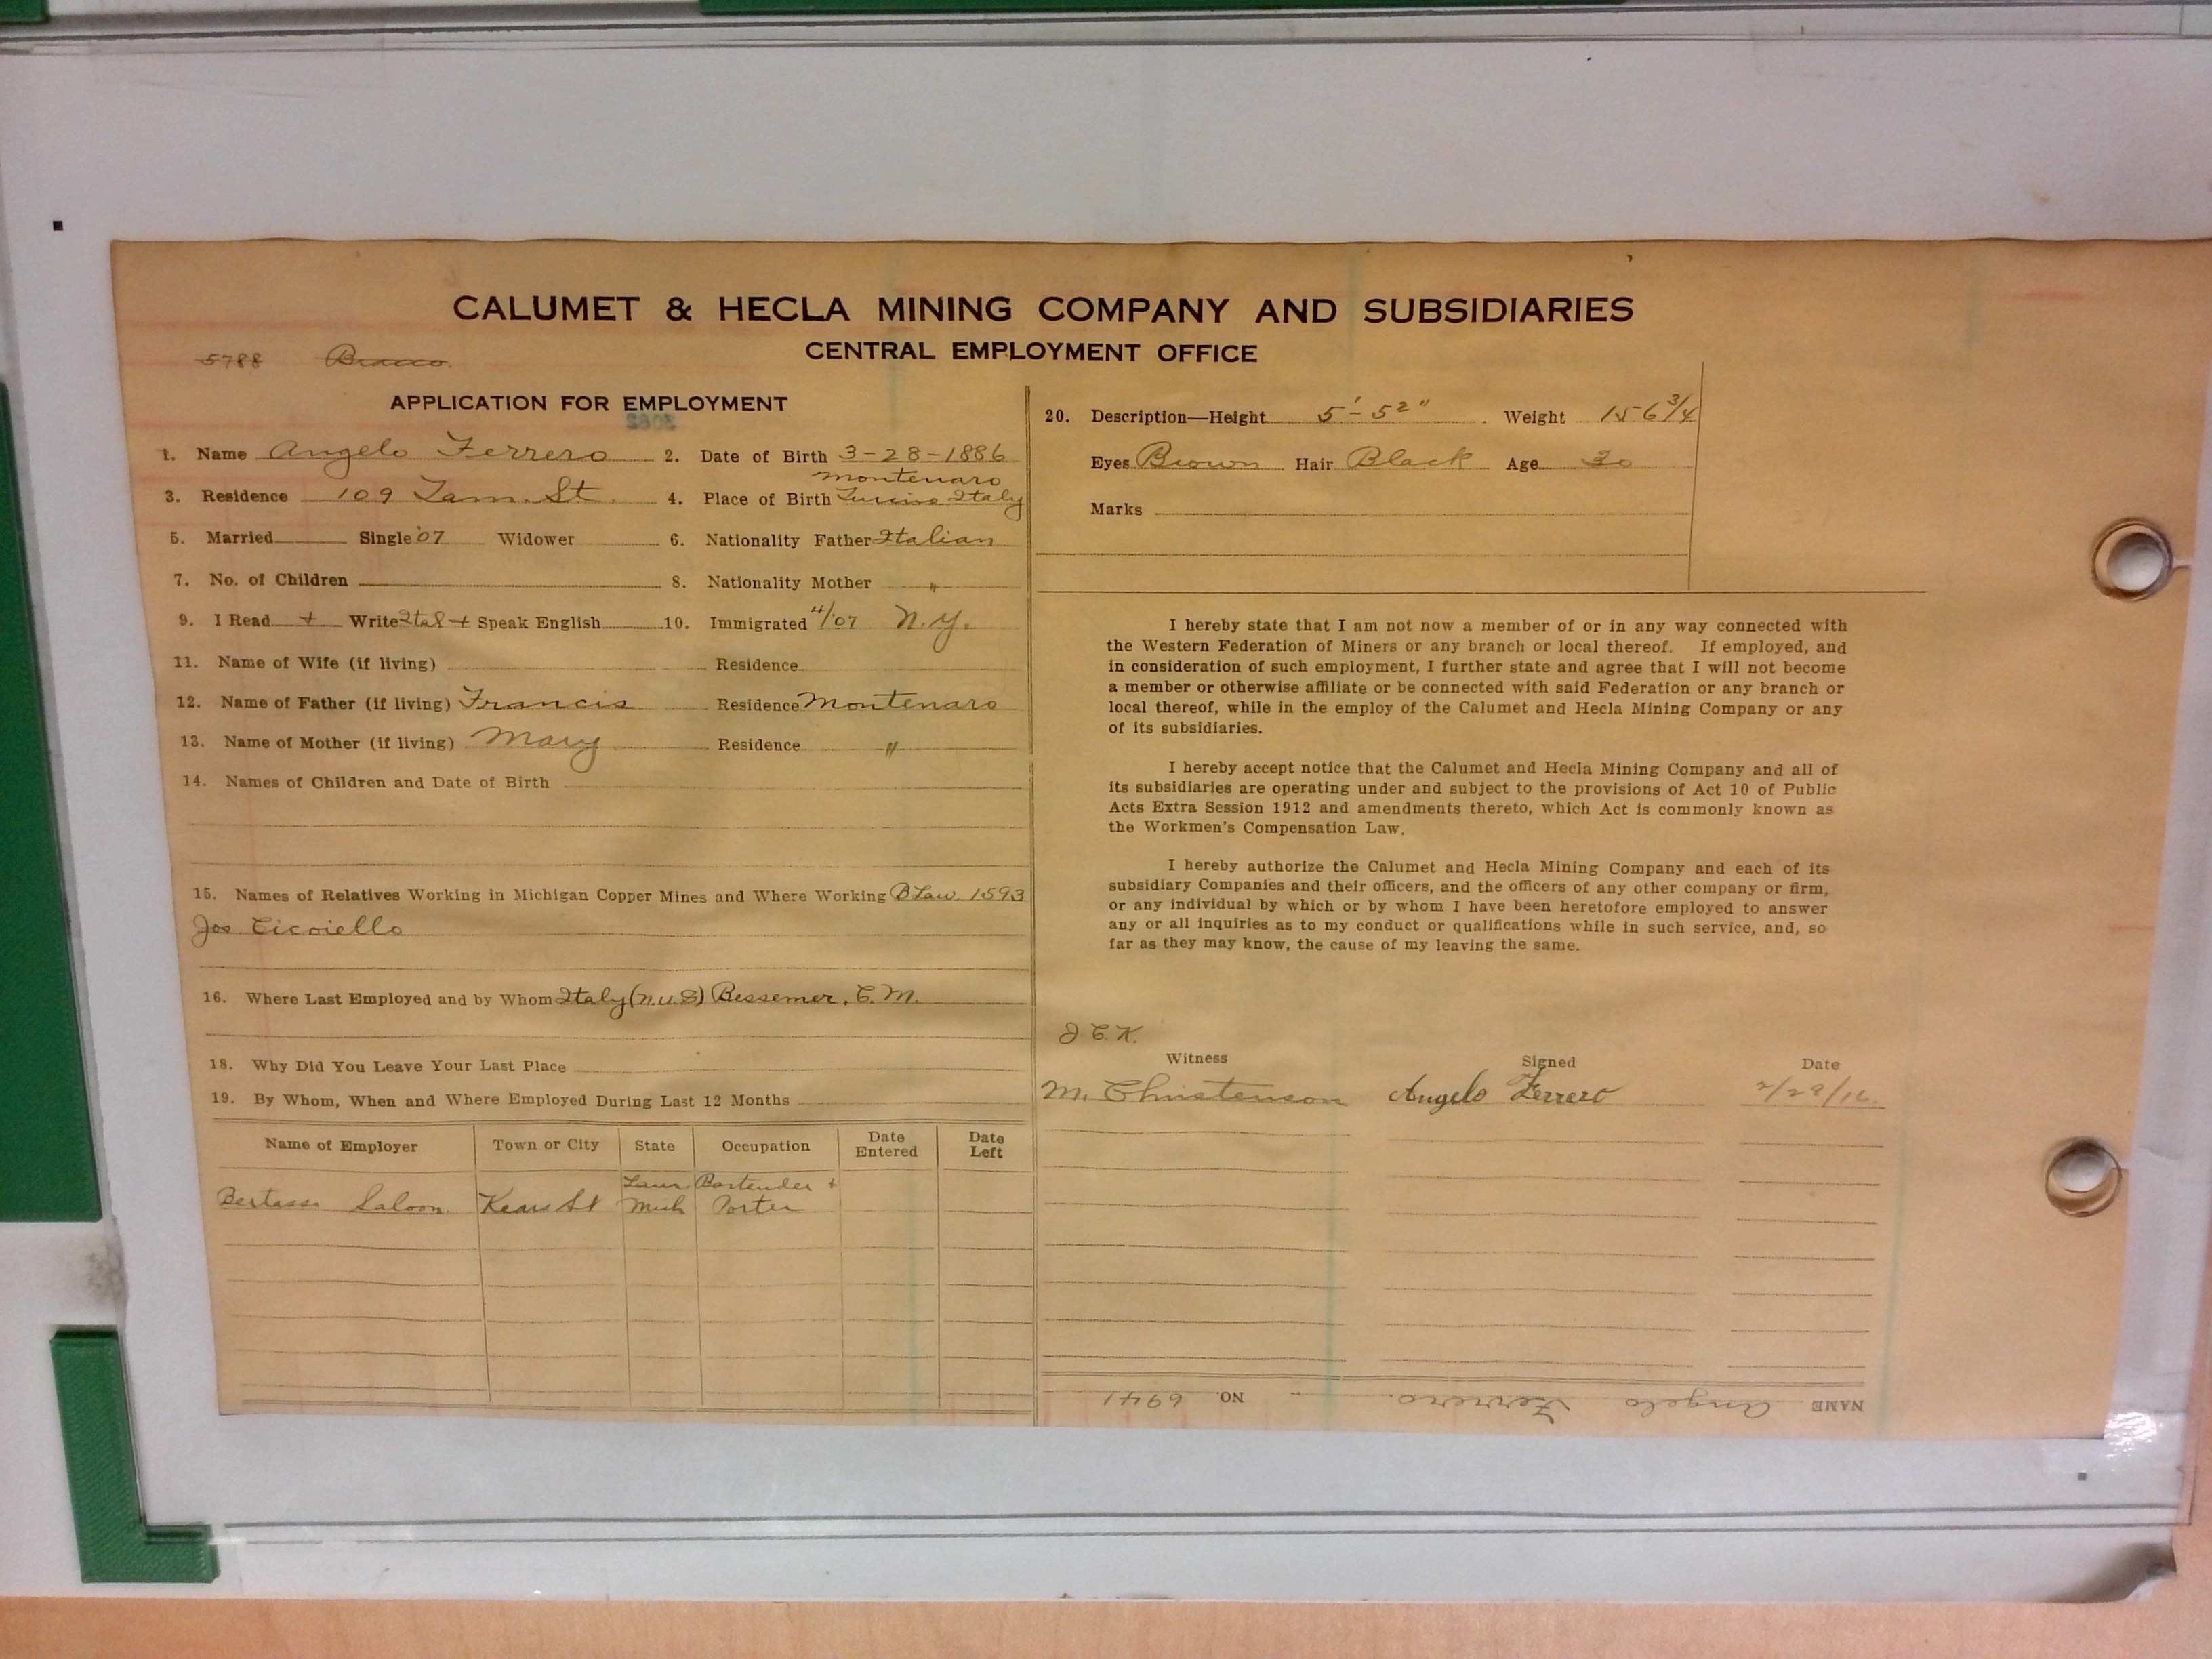 CALUMET & HECLA MINING COMPANY AND SUBSIDIARIES
CENTRAL EMPLOYMENT OFFICE
5788 Bracco.
APPLICATION FOR EMPLOYMENT
1. Name Angelo Ferrero 2. Date of Birth 3-28-1886
Montenaro
3. Residence 109 Tam. St. 4. Place of Birth Italy
5. Married Single '07 Widower 6. Nationality Father Italian
7. No. of Children 8. Nationality Mother "
9. I Read + Write Ital + Speak English 10. Immigrated 4/07 N.Y.
11. Name of Wife (if living) Residence
12. Name of Father (if living) Francis Residence Montenaro
13. Name of Mother (if living) Mary Residence "
14. Names of Children and Date of Birth
15. Names of Relatives Working in Michigan Copper Mines and Where Working B Law. 1593
Jos Cicoiello
16. Where Last Employed and by Whom Italy (N.U.S) Bessemer, C.M.
18. Why Did You Leave Your Last Place
19. By Whom, When and Where Employed During Last 12 Months
Name of Employer Town or City State Occupation Date Entered Date Left
Laur. Bartender +
Bertassi Saloon. Kears St Mich Porter
20. Description—Height 5'-5 2" Weight 156 3/4
Eyes Brown Hair Black Age 30
Marks
I hereby state that I am not now a member of or in any way connected with
the Western Federation of Miners or any branch or local thereof. If employed, and
in consideration of such employment, I further state and agree that I will not become
a member or otherwise affiliate or be connected with said Federation or any branch or
local thereof, while in the employ of the Calumet and Hecla Mining Company or any
of its subsidiaries.
I hereby accept notice that the Calumet and Hecla Mining Company and all of
its subsidiaries are operating under and subject to the provisions of Act 10 of Public
Acts Extra Session 1912 and amendments thereto, which Act is commonly known as
the Workmen's Compensation Law.
I hereby authorize the Calumet and Hecla Mining Company and each of its
subsidiary Companies and their officers, and the officers of any other company or firm,
or any individual by which or by whom I have been heretofore employed to answer
any or all inquiries as to my conduct or qualifications while in such service, and, so
far as they may know, the cause of my leaving the same.
J C.K.
Witness Signed Date
M. Christenson Angelo Ferrero 2/29/16.
NAME Angelo Ferrero. NO. 6941